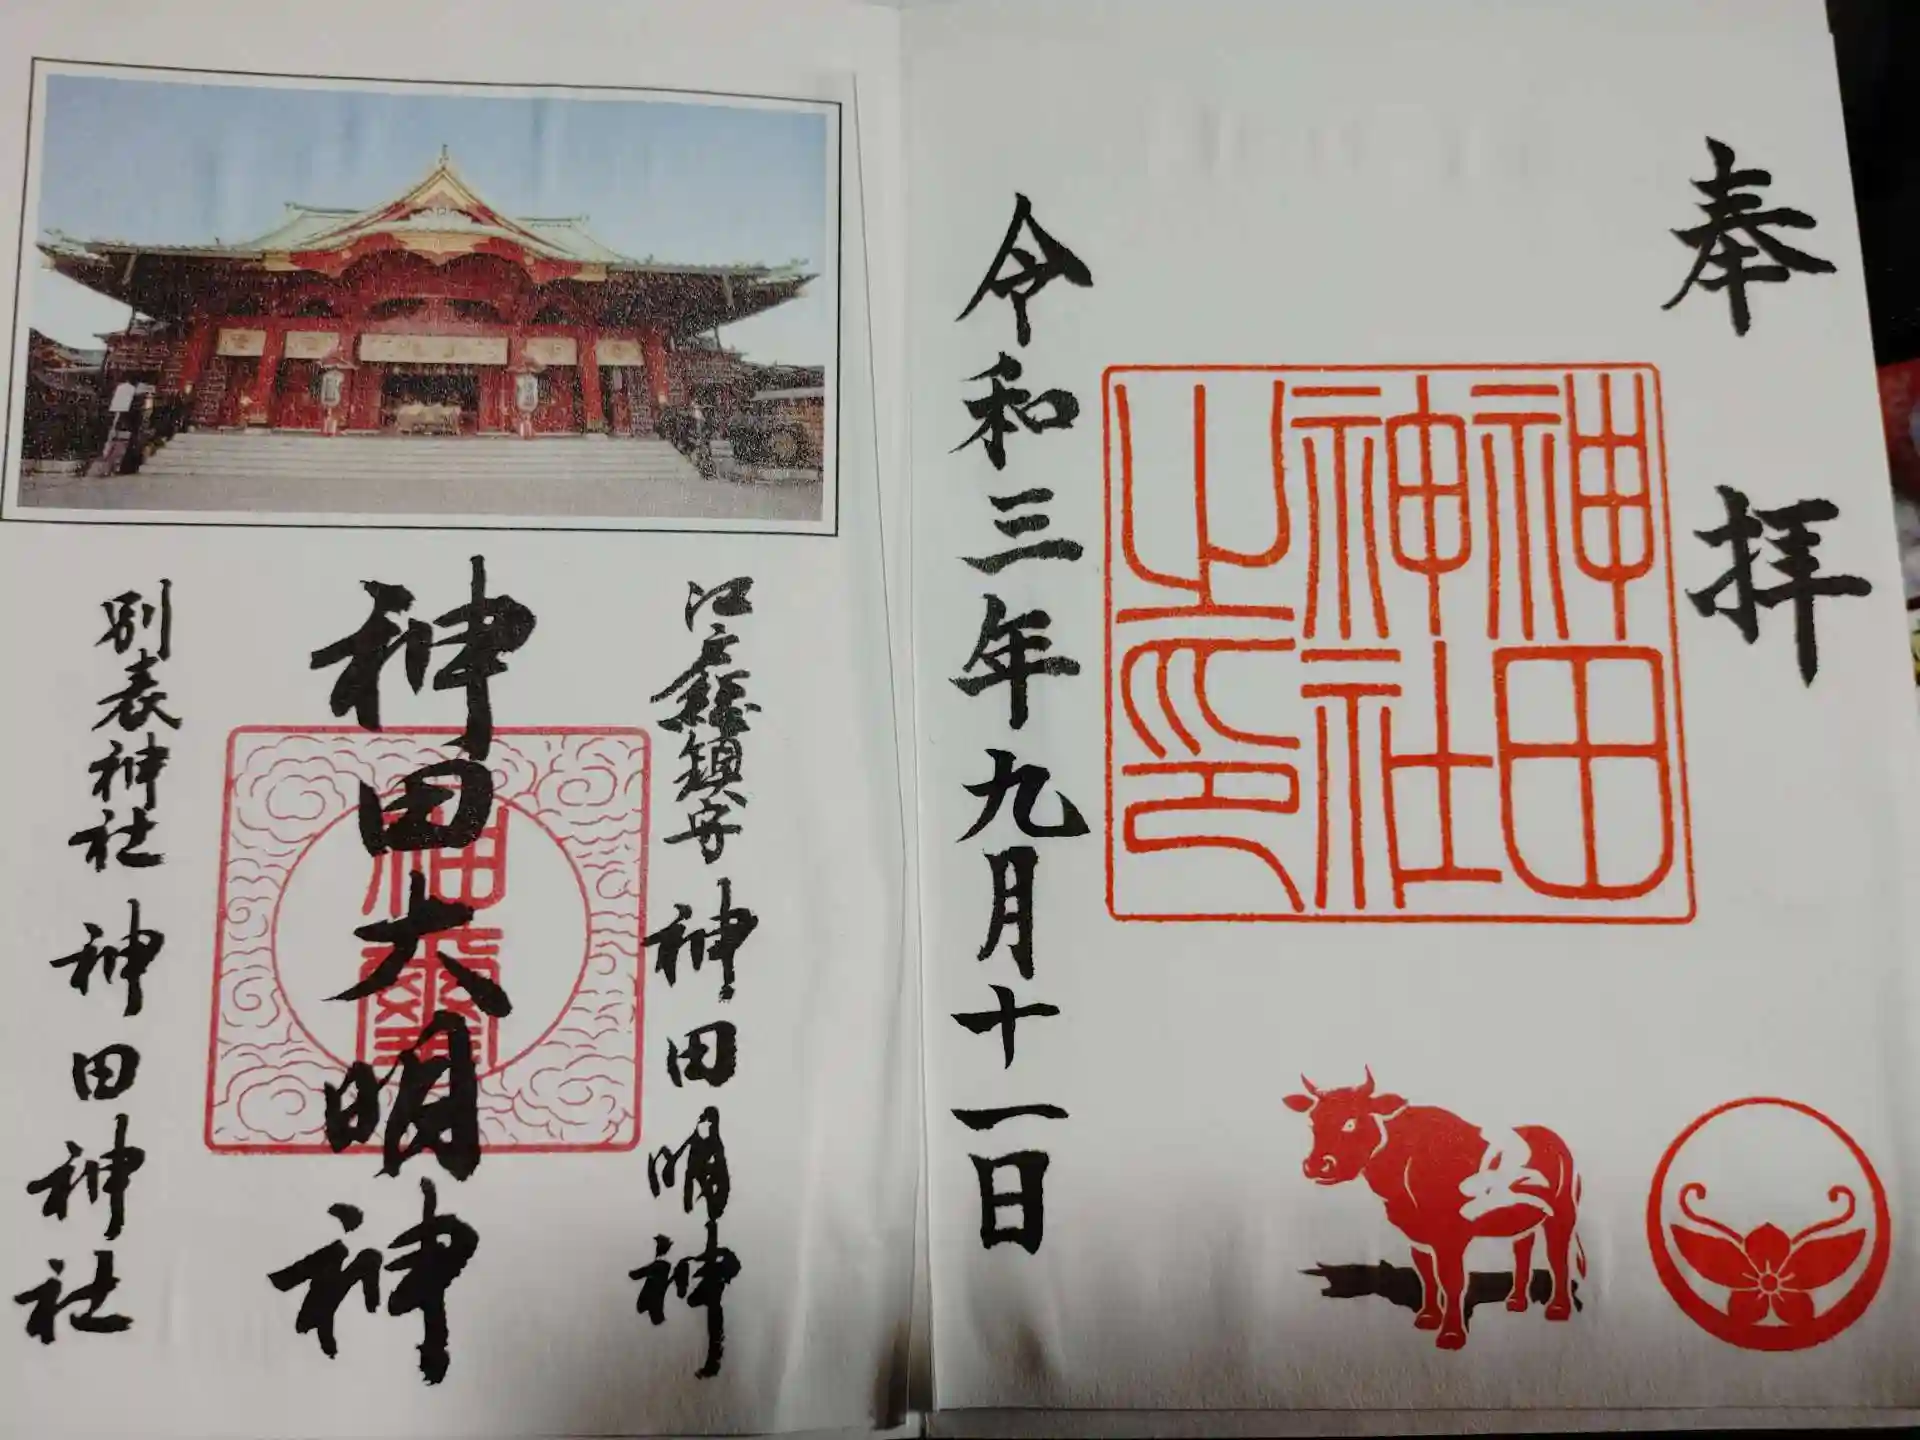 奉拝
神田
神社
之印
令和三年九月十一日
江戸総鎮守 神田明神
神田大明神
神璽
別表神社 神田神社